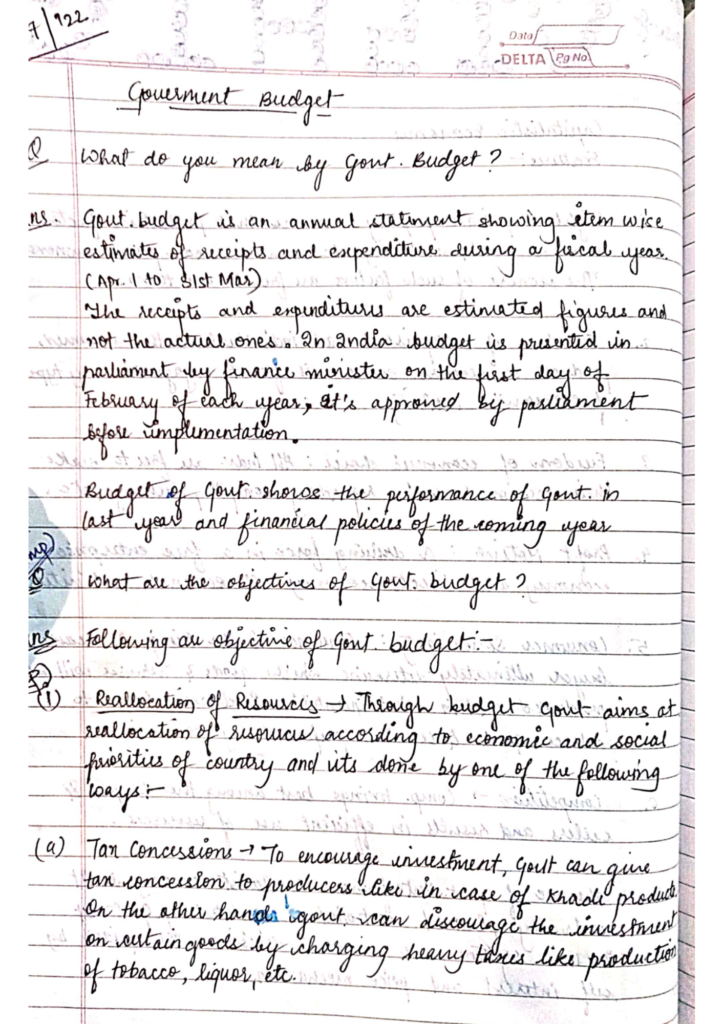 7/922
Data
DELTA Pg No
Goverment Budget
Q What do you mean by Govt. Budget?
ns. Govt. budget is an annual statement showing item wise
estimates of receipts and expenditure during a fiscal year.
(Apr. 1 to 31st Mar)
The receipts and expenditures are estimated figures and
not the actual ones. In India budget is presented in
parliament by finance minister on the first day of
February of each year, it's approved by parliament
before implementation.
Budget of Govt. shows the performance of Govt. in
last year and financial policies of the coming year
mp)
Q What are the objectives of Govt. budget?
ns Following are objective of Govt. budget:-
(1) Reallocation of Resources → Through budget Govt aims at
reallocation of resources according to economic and social
priorities of country and its done by one of the following
ways:-
(a) Tax Concessions → To encourage investment, Govt can give
tax concession to producers like in case of Khadi product.
On the other hand govt. can discourage the investment
on certain goods by charging heavy taxes like production
of tobacco, liquor, etc.